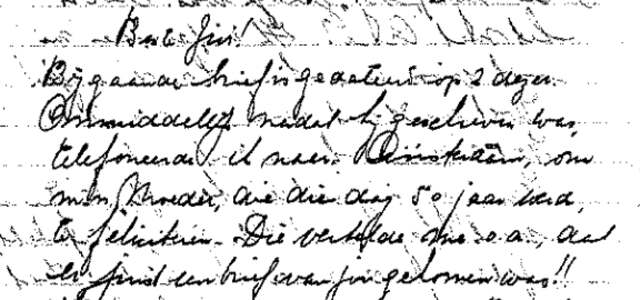 Beste Jin!
Bijgaande brief is gedateerd op 2 dezer.
Onmiddellijk nadat hij geschreven was,
telefoneerde ik naar Amsterdam, om
mijn Moeder, die die dag 50 jaar werd,
te feliciteren. Die vertelde me o.a., dat
er juist een brief van jou gekomen was!!